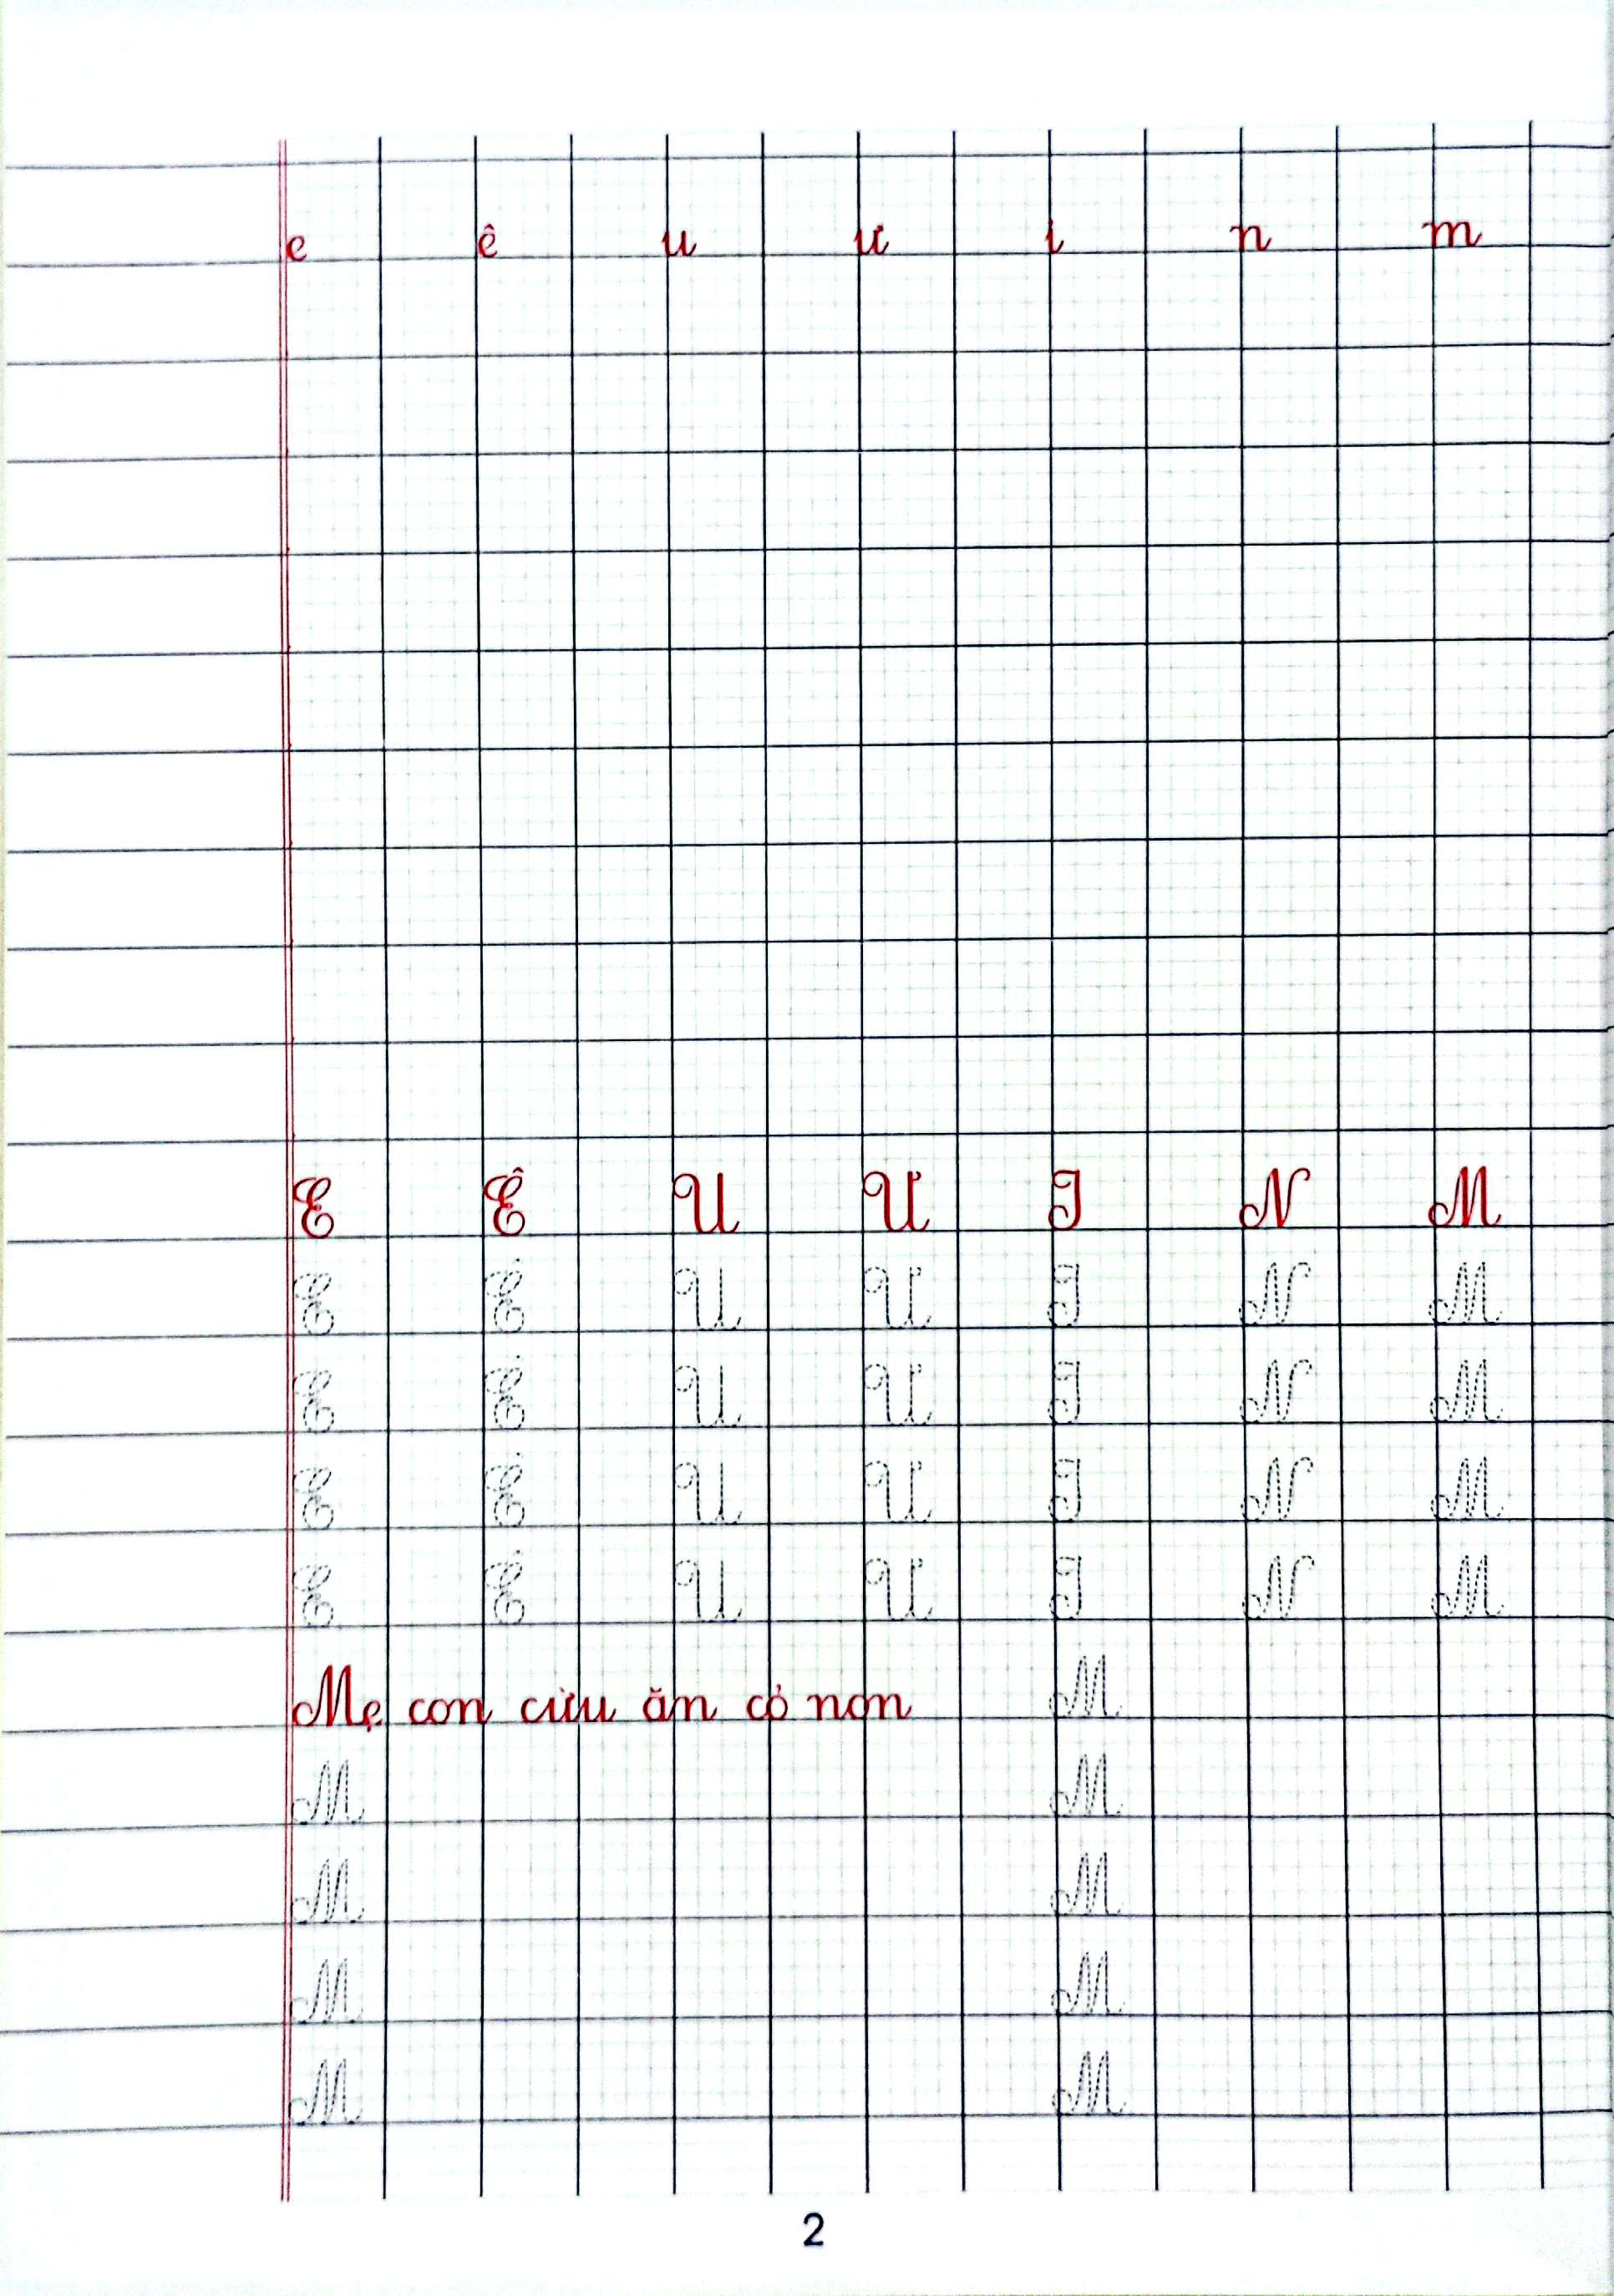 e ê u ư i n m
E Ê U Ư I N M
E Ê U Ư I N M
E Ê U Ư I N M
E Ê U Ư I N M
E Ê U Ư I N M
Mẹ con cừu ăn cỏ non M
M M
M M
M M
M M
2